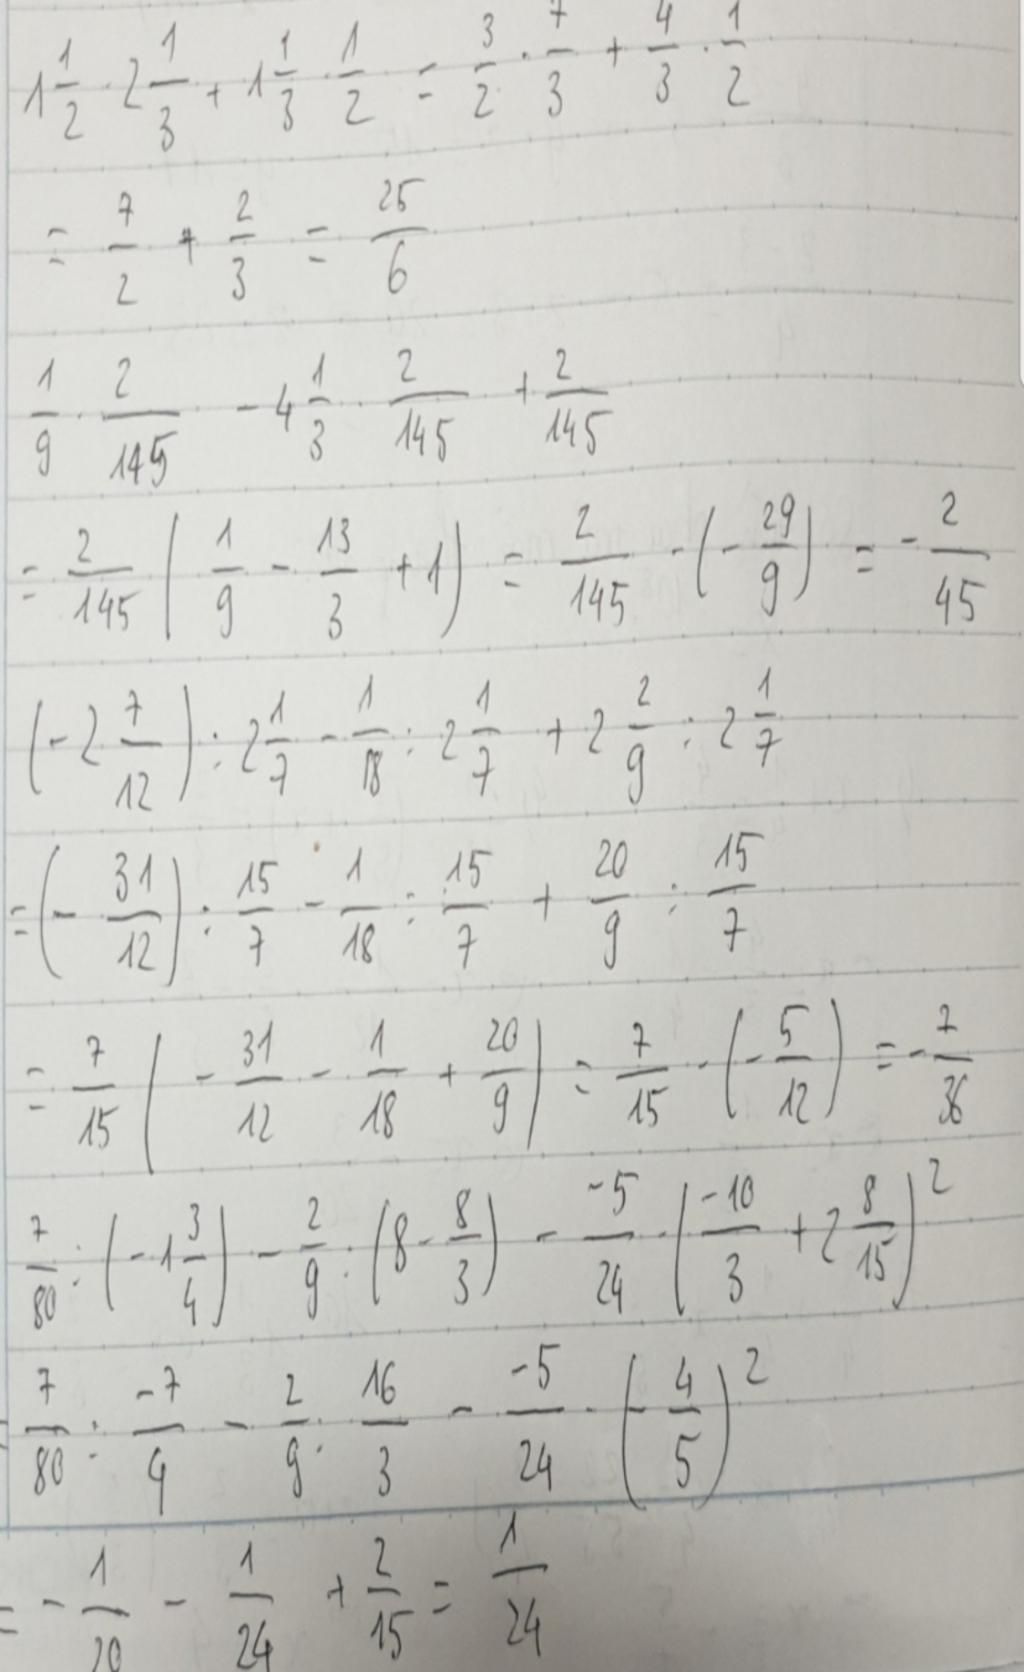 1 1/2 · 2 1/3 + 1 1/3 · 1/2 = 3/2 · 7/3 + 4/3 · 1/2
= 7/2 + 2/3 = 25/6
1/9 · 2/145 - 4 1/3 · 2/145 + 2/145
= 2/145 ( 1/9 - 13/3 + 1 ) = 2/145 · ( - 29/9 ) = - 2/45
( - 2 7/12 ) : 2 1/7 - 1/18 : 2 1/7 + 2 2/9 : 2 1/7
= ( - 31/12 ) : 15/7 - 1/18 : 15/7 + 20/9 : 15/7
= 7/15 ( - 31/12 - 1/18 + 20/9 ) = 7/15 · ( - 5/12 ) = - 7/36
7/80 : ( - 1 3/4 ) - 2/9 : ( 8 - 8/3 ) - -5/24 · ( -10/3 + 2 8/15 )²
= 7/80 : -7/4 - 2/9 : 16/3 - -5/24 · ( - 4/5 )²
= - 1/20 - 1/24 + 2/15 = 1/24